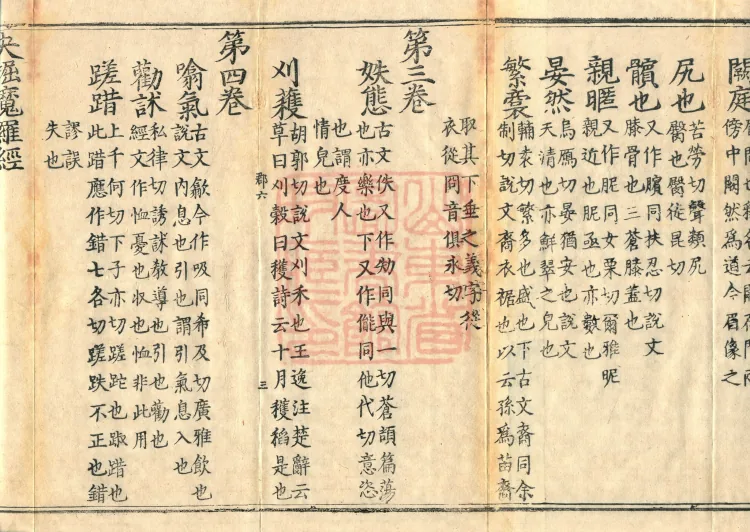 闕庭
傍中閒闕然爲道今眉像之
尻也苦勞切聲類尻
臀也臀徒昆切
髕也又作臏同扶忍切說文
膝骨也三蒼膝蓋也
親暱又作昵同女栗切爾雅昵
親近也昵亟也亦數也
晏然烏鴈切晏猶安也說文
天清也亦鮮翠之皃也
繁裔輔袁切繁多也盛也下古文裔同余
制切說文裔衣裾也以云孫爲苗裔
取其下垂之義字從
衣從冏音俱永切
第三卷
妷態古文佚又作劮同與一切蒼頡篇蕩
也亦樂也下又作能同他代切意恣
也謂度人
情皃也
刈穫胡郭切說文刈禾也王逸注楚辭云
草曰刈穀曰穫詩云十月穫稻是也
郡六 三
第四卷
噏氣古文歙今作吸同希及切廣雅飲也
說文內息也引也謂引氣息入也
勸訹私律切誘訹教導也引也勸也
經文作恤憂也收也恤非此用
蹉踖上千何切下子亦切蹉跎也踧踖也
此踖應作錯七各切蹉跌不正也錯
謬誤
失也
央掘魔羅經